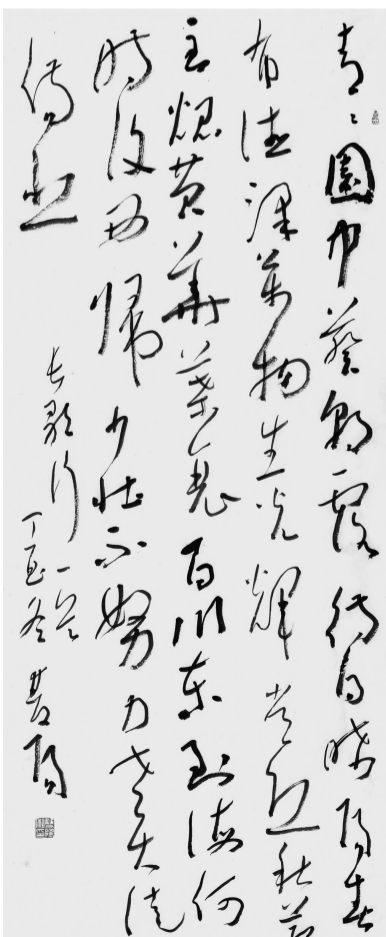 青々園中葵朝露待日晞陽春
布德澤萬物生光輝常恐秋節
至焜黃華葉衰百川東到海何
時復西歸少壯不努力老大徒
傷悲
長歌行一首
丁酉冬